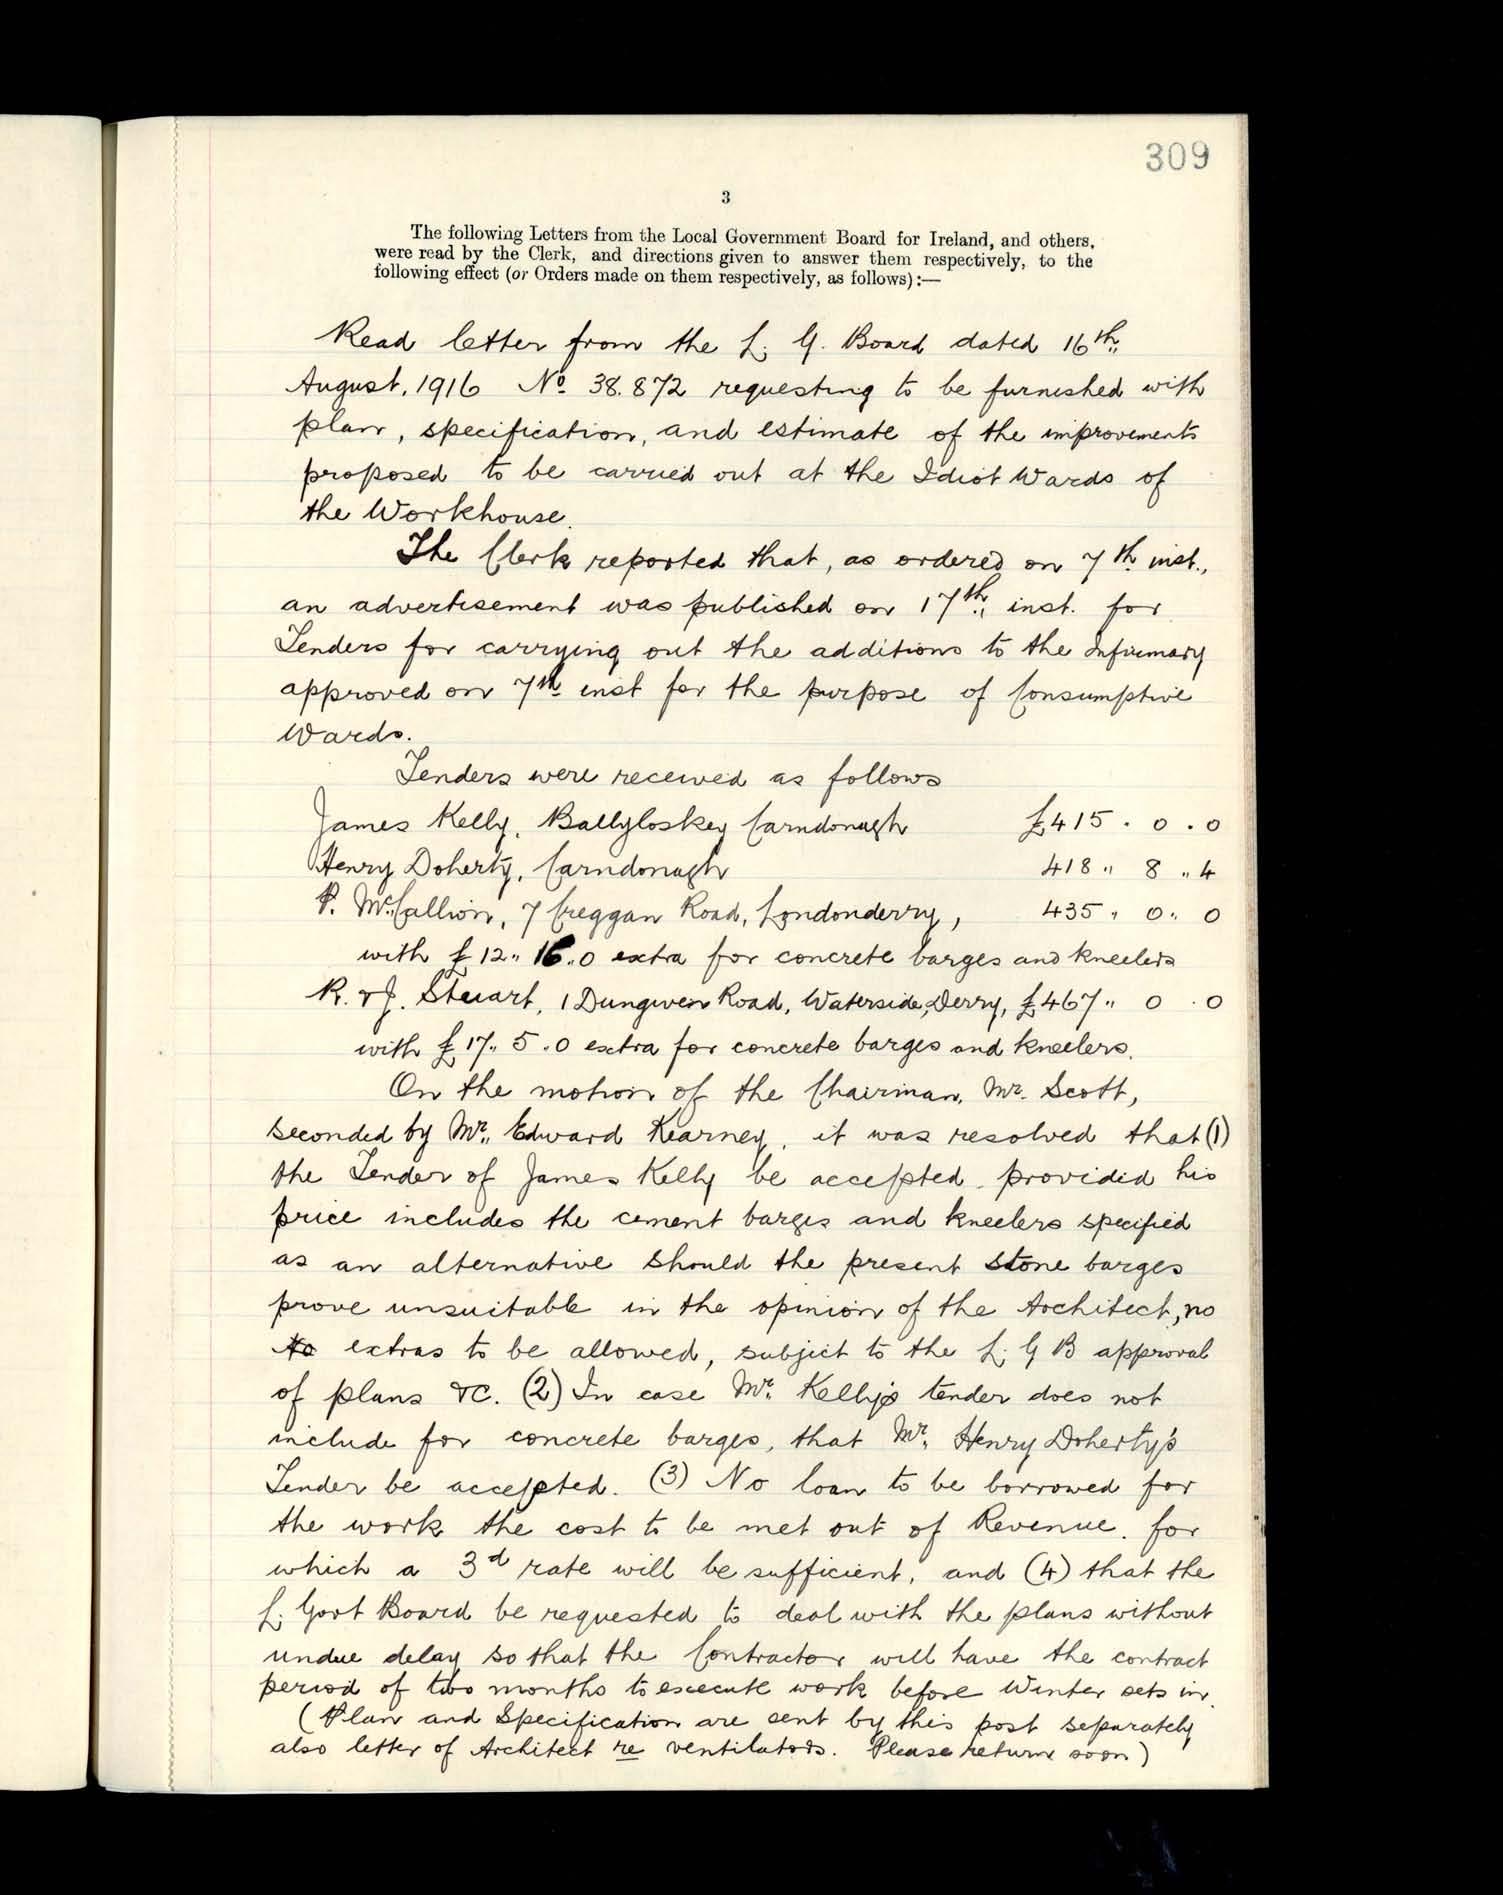 309
3
The following Letters from the Local Government Board for Ireland, and others,
were read by the Clerk, and directions given to answer them respectively, to the
following effect (or Orders made on them respectively, as follows) :—
Read letter from the L. G. Board dated 16th
August, 1916 No 38.872 requesting to be furnished with
plan, specification, and estimate of the improvements
proposed to be carried out at the Idiot Wards of
the Workhouse.
The Clerk reported that, as ordered on 7th inst.,
an advertisement was published on 17th inst. for
Tenders for carrying out the additions to the Infirmary
approved on 7th inst for the purpose of Consumptive
Wards.
Tenders were received as follows
James Kelly, Ballyloskey Carndonagh £415 . 0 . 0
Henry Doherty, Carndonagh 418 " 8 " 4
P. McCallion, 7 Creggan Road, Londonderry, 435 " 0 " 0
with £12 " 16 " 0 extra for concrete barges and kneelers
R. & J. Steuart, 1 Dungiven Road, Waterside, Derry, £467 " 0 . 0
with £17 " 5 . 0 extra for concrete barges and kneelers.
On the motion of the Chairman, Mr. Scott,
seconded by Mr. Edward Kearney, it was resolved that (1)
the Tender of James Kelly be accepted provided his
price includes the cement barges and kneelers specified
as an alternative should the present stone barges
prove unsuitable in the opinion of the Architect, no
to extras to be allowed, subject to the L. G B approval
of plans &c. (2) In case Mr. Kelly's tender does not
include for concrete barges, that Mr. Henry Doherty's
Tender be accepted. (3) No loan to be borrowed for
the work the cost to be met out of Revenue. for
which a 3d rate will be sufficient, and (4) that the
L. Govt Board be requested to deal with the plans without
undue delay so that the Contractor will have the contract
period of two months to execute work before Winter sets in.
(Plan and Specification are sent by this post separately
also letter of Architect re ventilators. Please return soon)